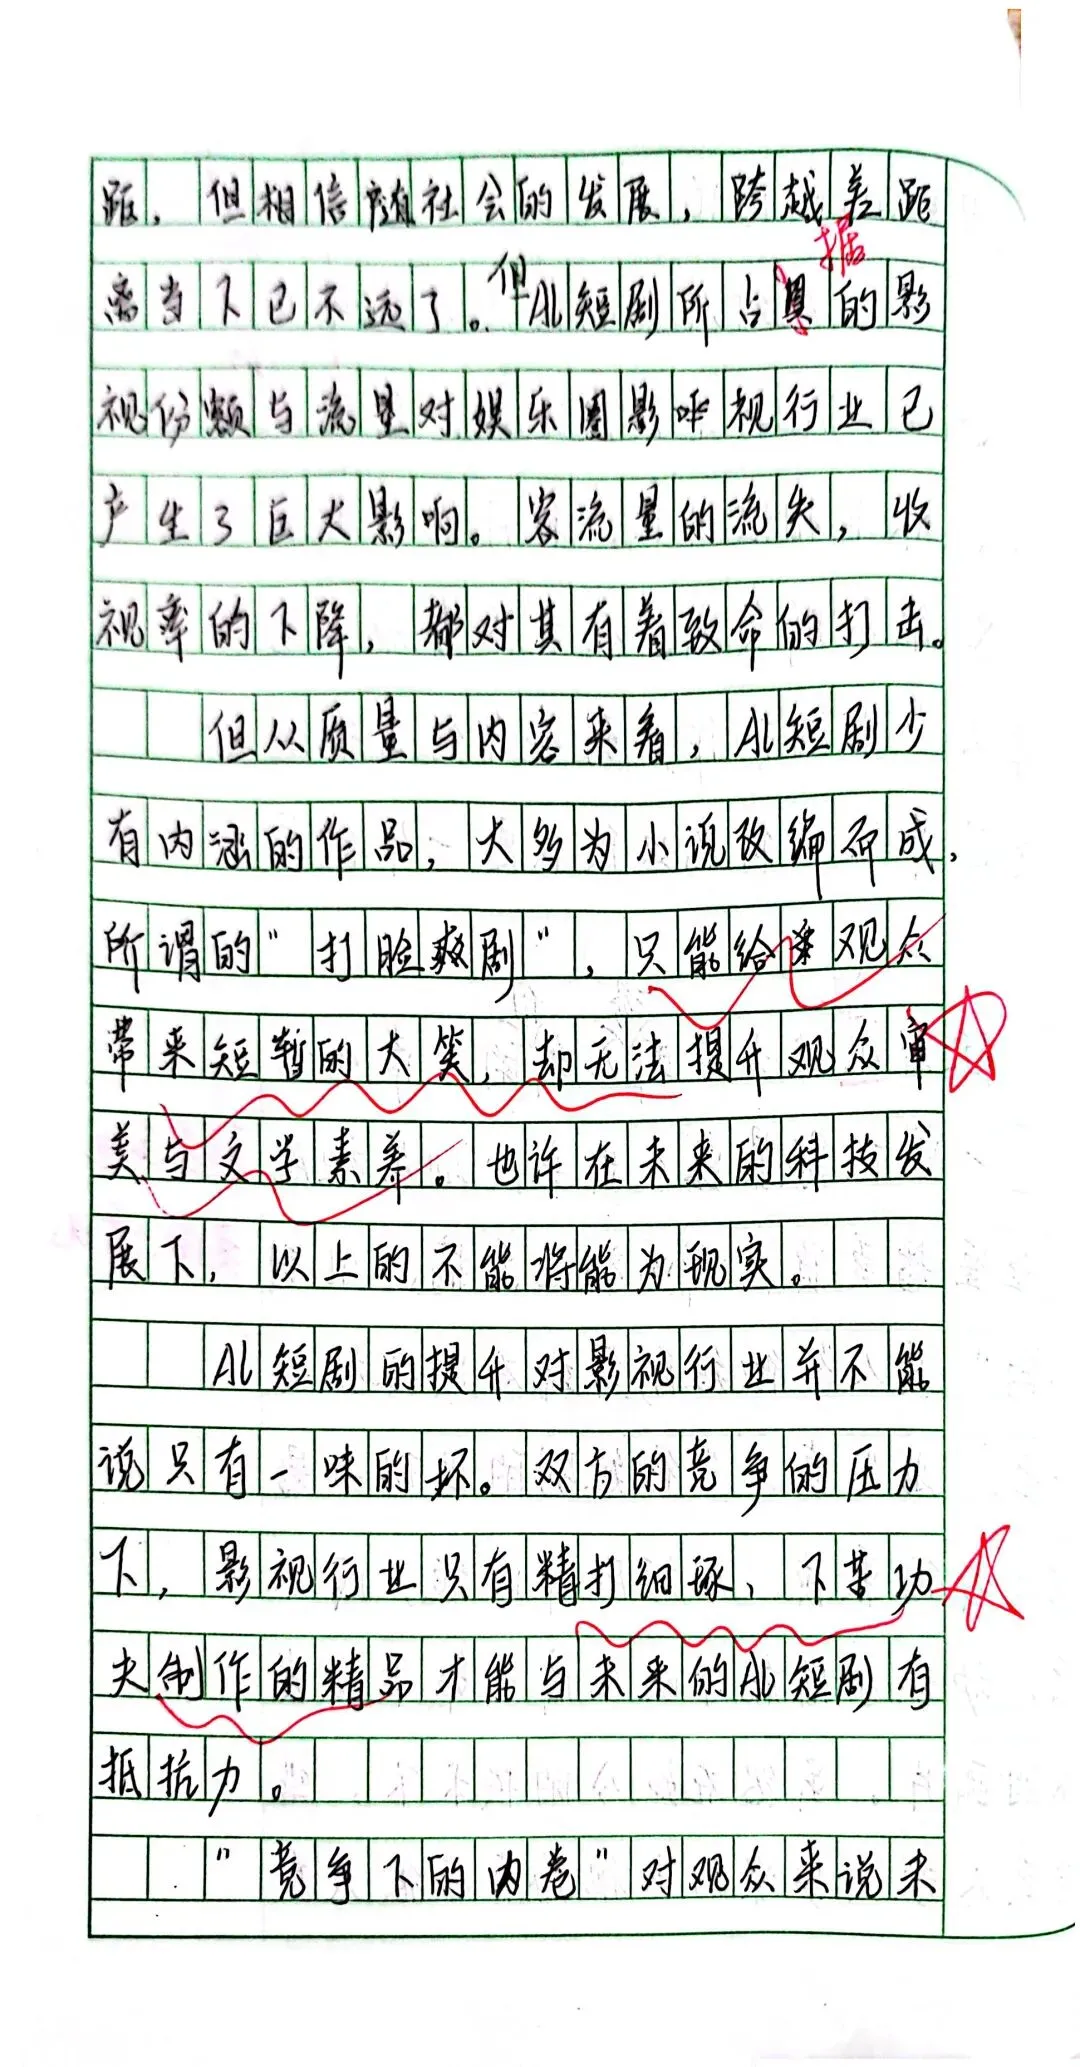 距，但相信随社会的发展，跨越差距
离当下已不远了。但AI短剧所占具的影
据
视份额与流量对娱乐圈影视行业已
产生了巨大影响。客流量的流失，收
视率的下降，都对其有着致命的打击。
但从质量与内容来看，AI短剧少
有内涵的作品，大多为小说改编而成，
所谓的"打脸爽剧"，只能给观众
带来短暂的大笑，却无法提升观众审
美与文学素养。也许在未来的科技发
展下，以上的不能将能为现实。
AI短剧的提升对影视行业并不能
说只有一味的坏。双方的竞争的压力
下，影视行业只有精打细琢、下苦功
夫制作的精品才能与未来的AI短剧有
抵抗力。
"竞争下的内卷"对观众来说未